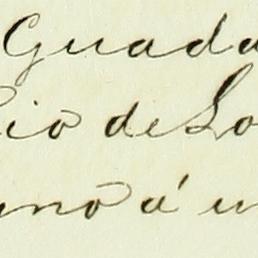 Guada
io de Lo
uno á u